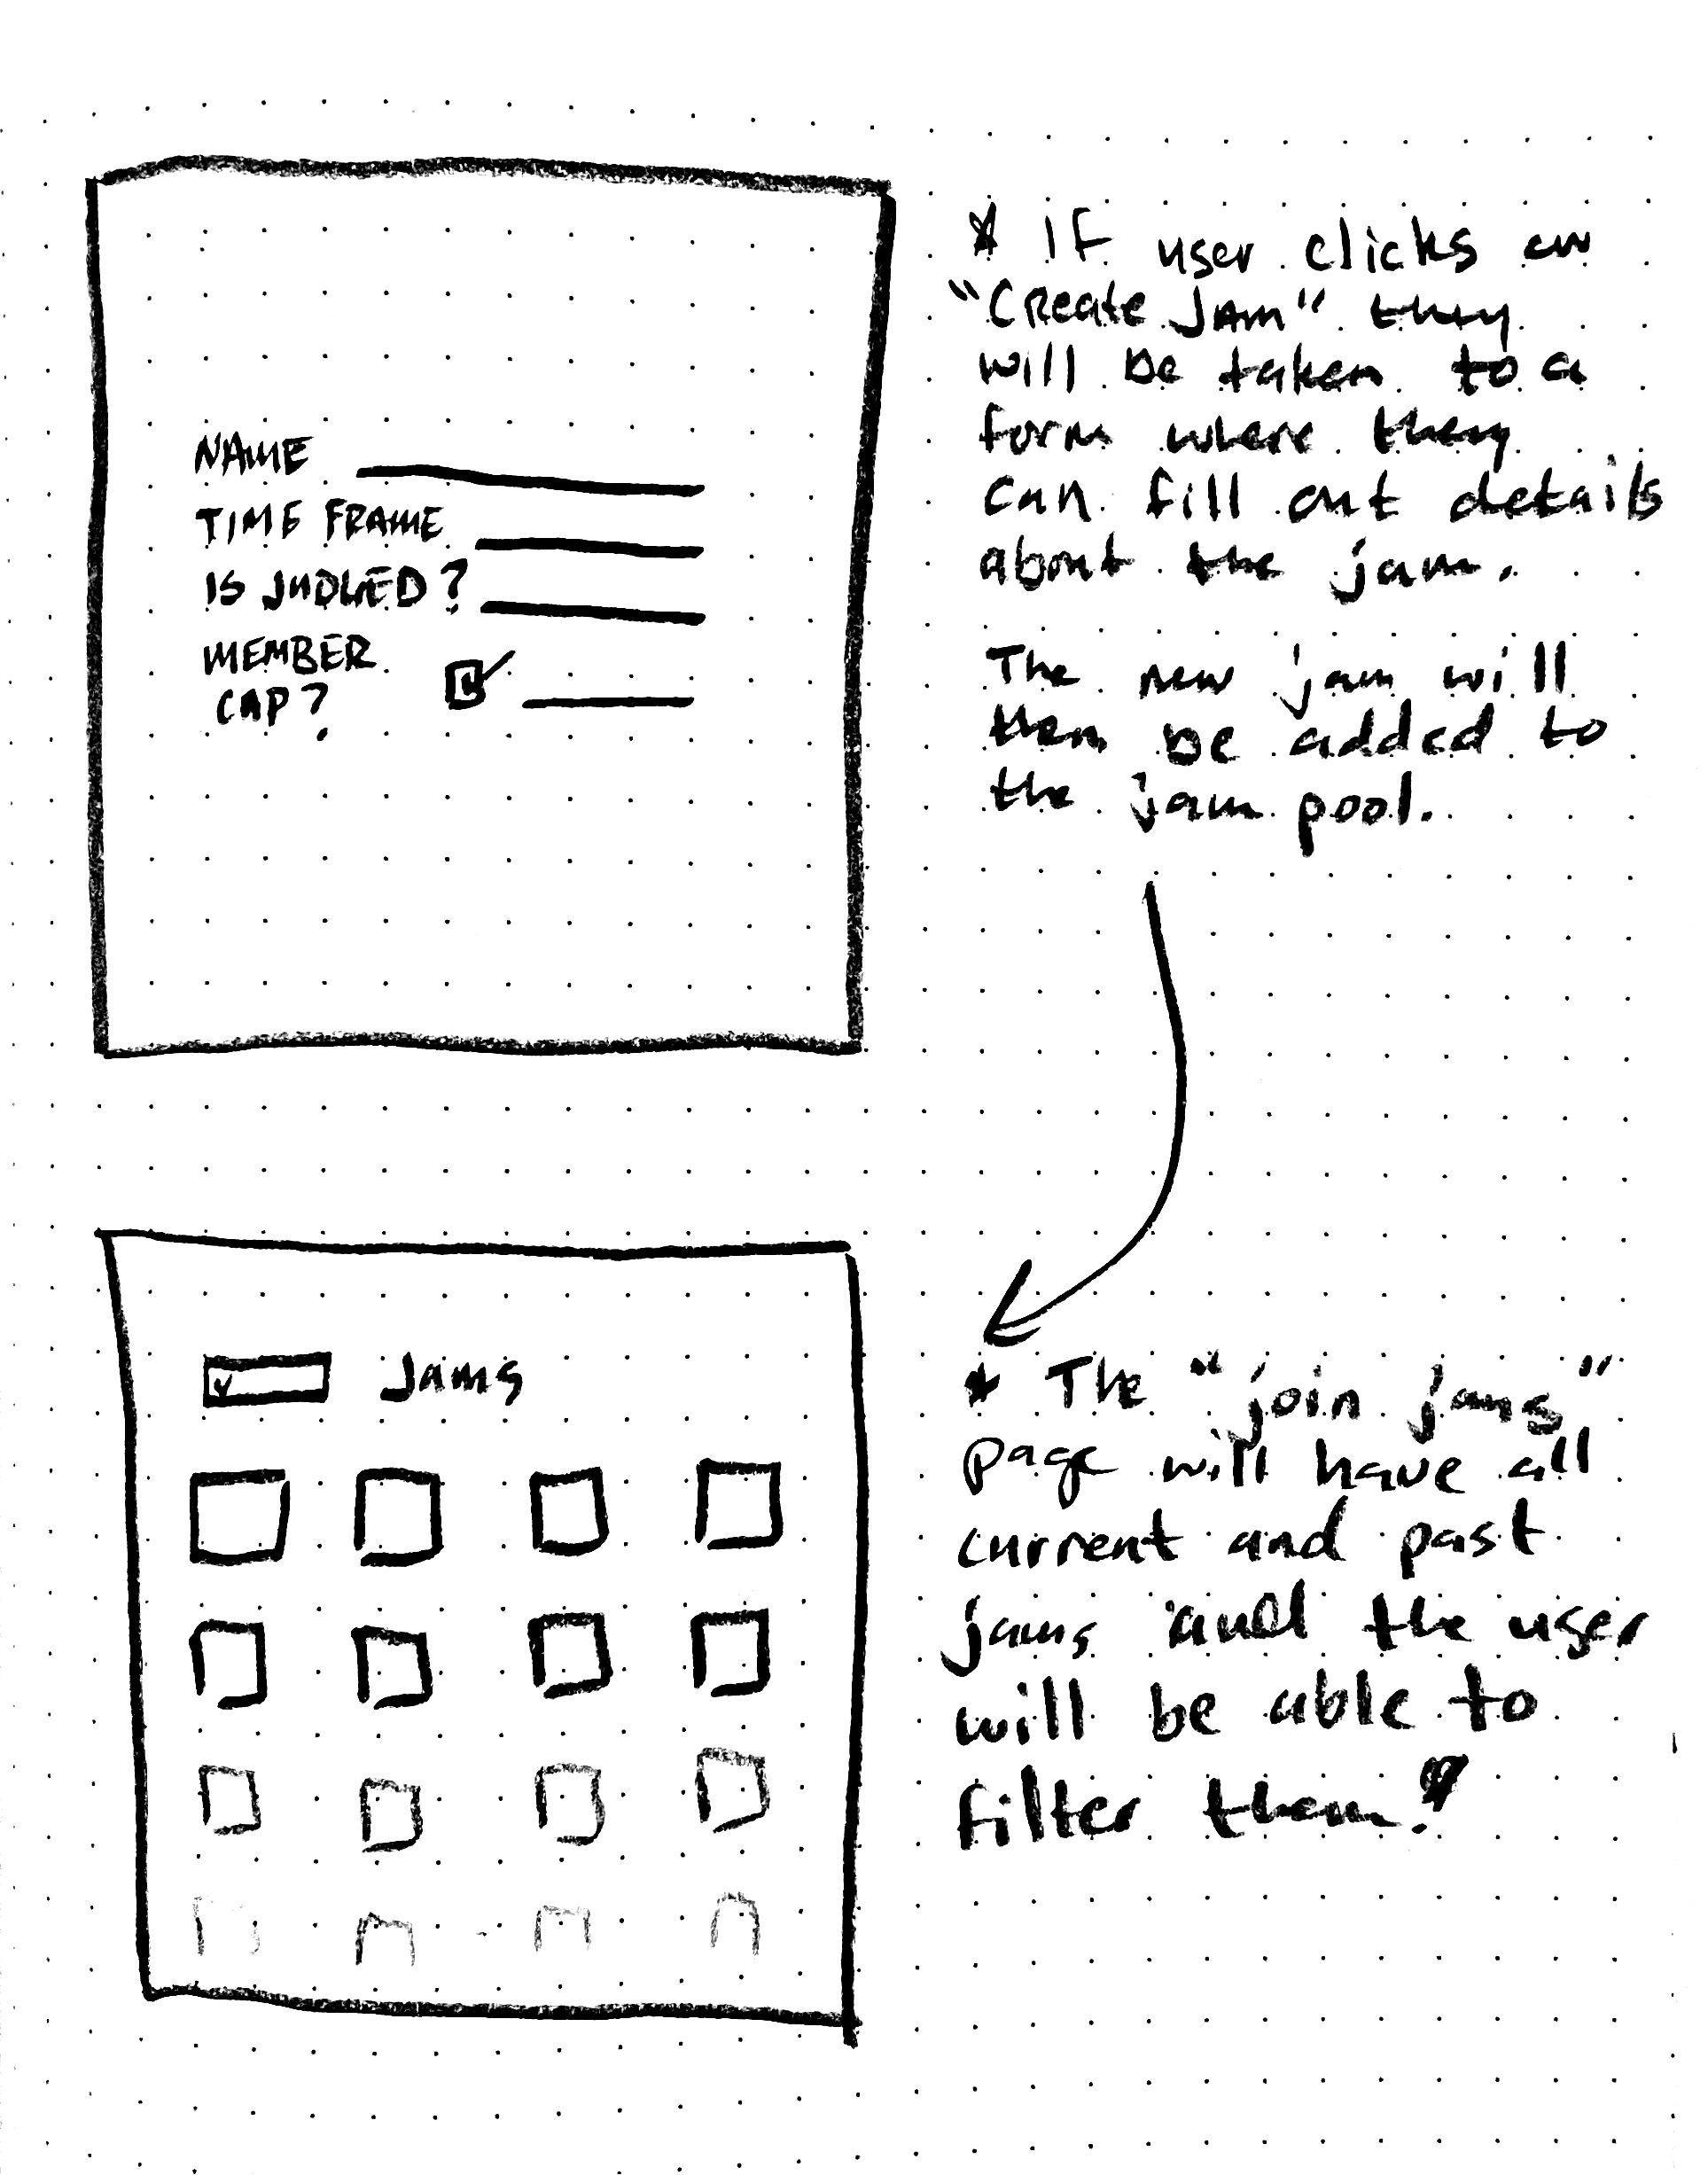 NAME
TIME FRAME
IS JUDGED?
MEMBER
CAP?
* IF user clicks on
"Create JAM" they
will be taken to a
form where they
can fill out details
about the jam.
The new jam will
then be added to
the jam pool.
Jams
* The "join jams"
page will have all
current and past
jams and the user
will be able to
filter them.